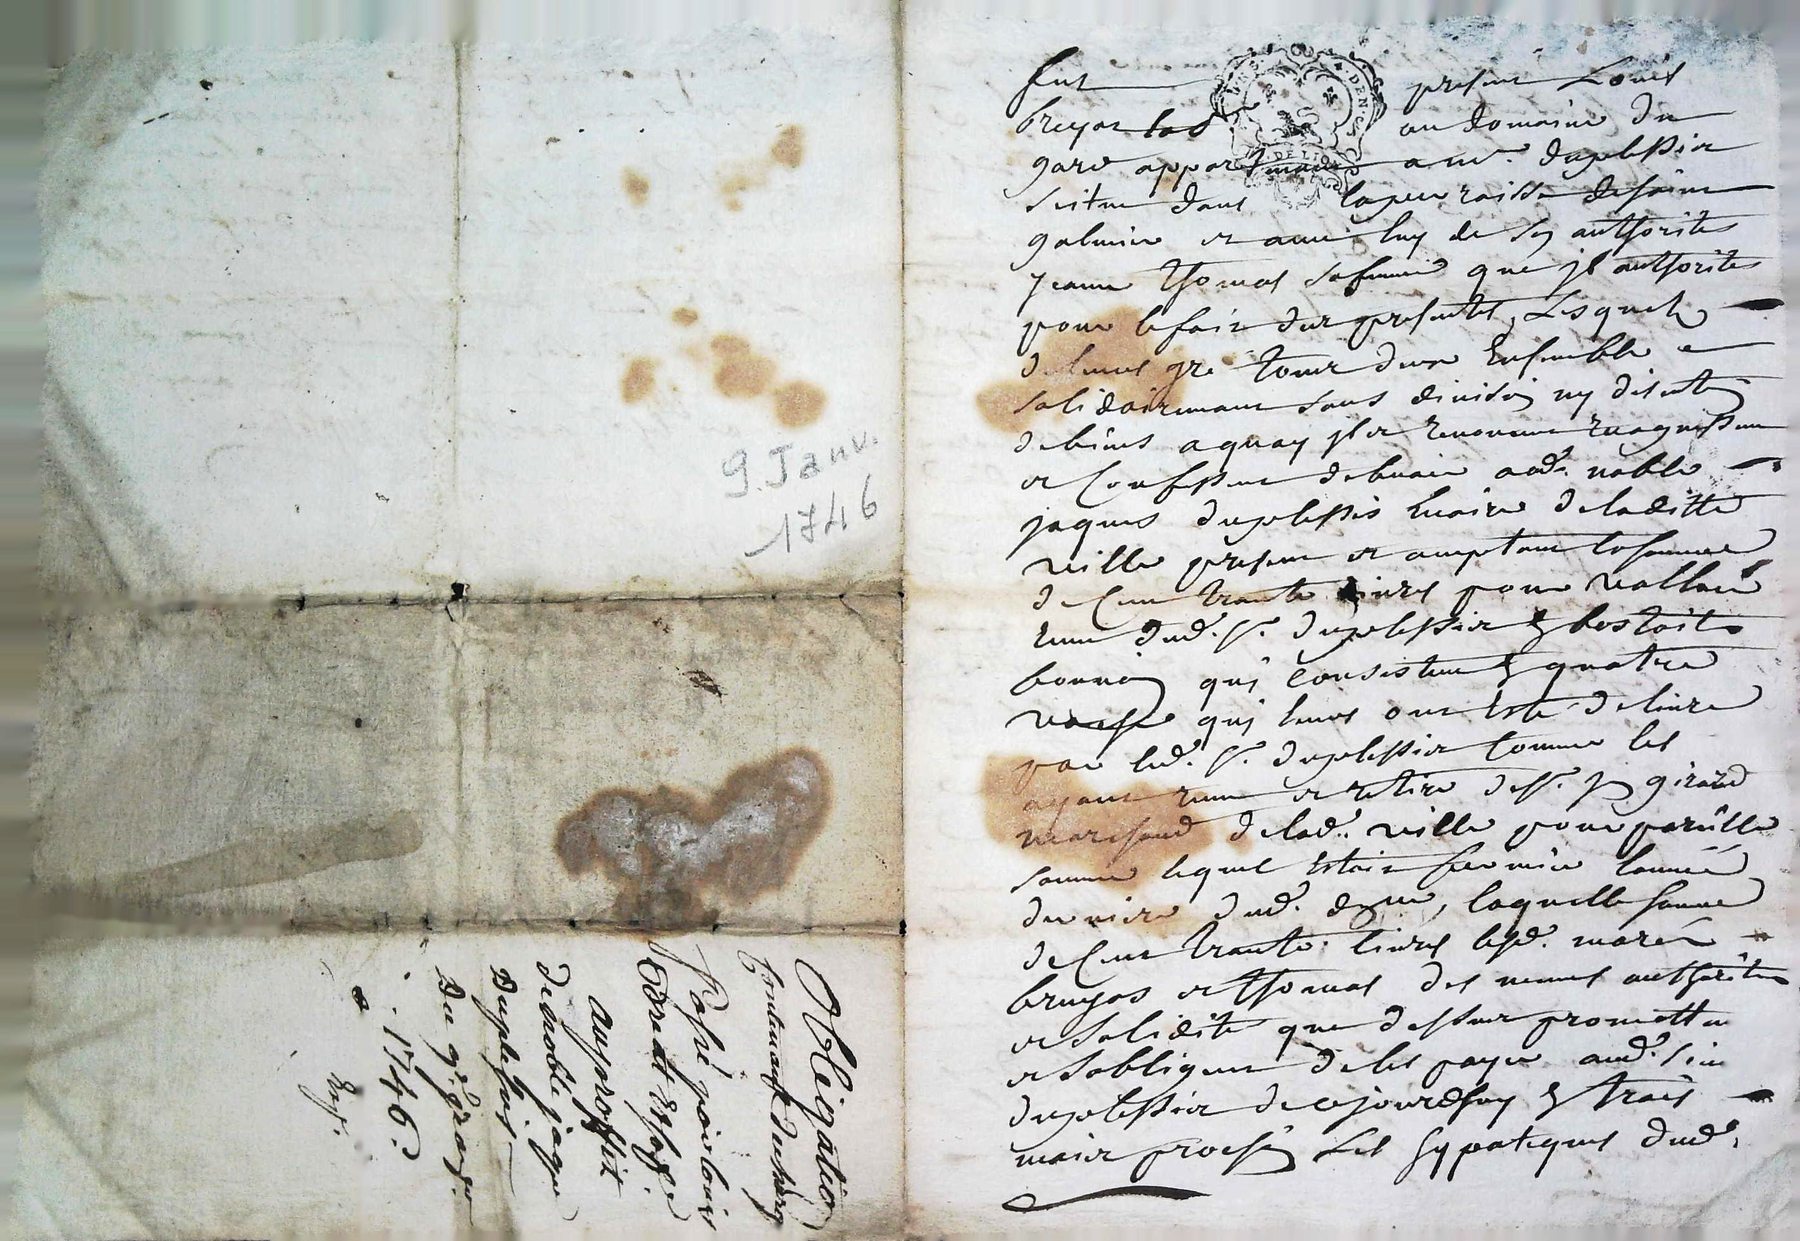 9. Janv.
1746
Obligation
Passé par louis
au proffit
de noble jaque
Duplessis
Du 9e.
1746.
Fut present Louis
breyas au domaine du
gard appartenant a mr. duplessier
scitue dans la parroisse de saint
galmier et avec luy de son authorite
jeanne thomas sa femme que jl authorite
pour le fait des presentes, Lesquels
de leurs gré tous deux Ensemble et
solidairement sans division ny discution
de biens a quoy jls renoncent
et Confessent debvoir aud. noble
jaques duplessis maire de laditte
ville present et acceptant la somme
de Cent trante livres pour valleur
reçeue dud. sr. duplessier en bestaits
qui consistent en quatre
vache qui leurs ont Este delivre
par led. sr. duplessier comme les
ayant et retire de sr. girard
marchand de lad. ville pour pareille
somme lequel Estoit fermier l'année
derniere dud. laquelle somme
de Cent trante livres lesd. mariés
bruyas et thomas des memes authorites
et solidité que dessus promettent
et sobligent de les payer aud. sieur
duplessier de ce jourdhuy en trois
mois prochain Les hypoteques dud.
DE LION